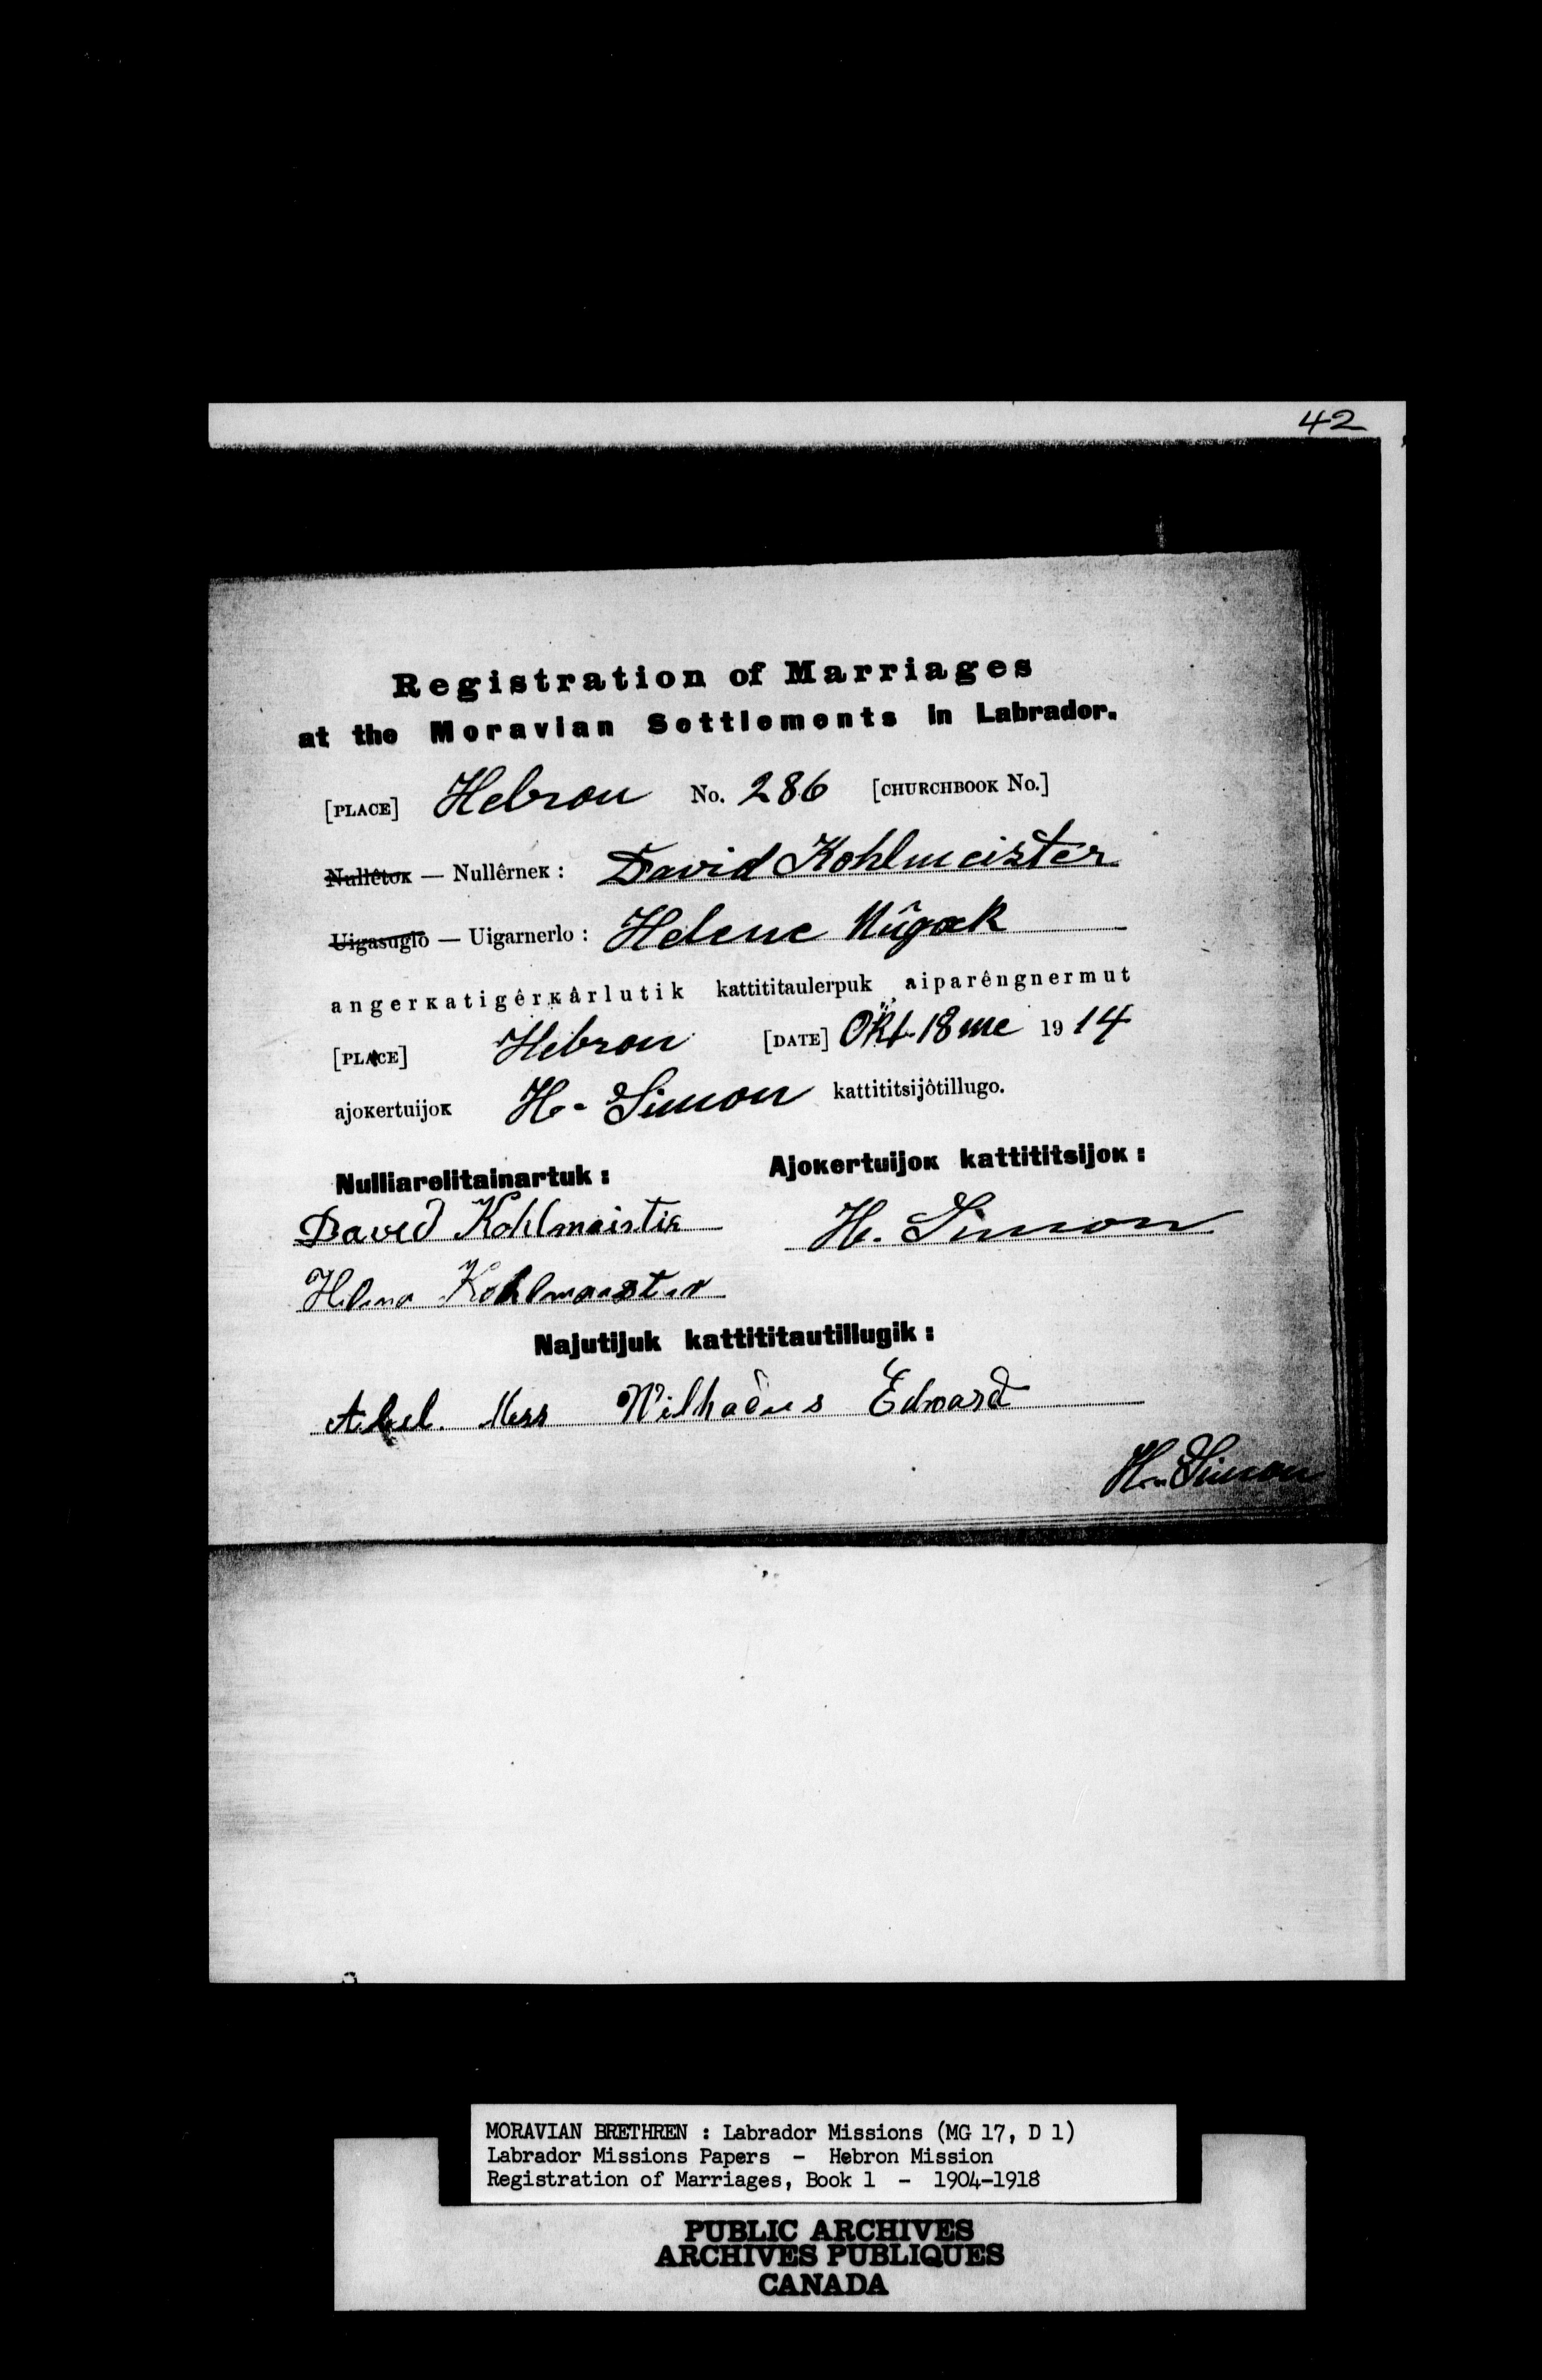 42
Registration of Marriages
at the Moravian Settlements in Labrador.
[PLACE] Hebron No. 286 [CHURCHBOOK No.]
Nullêtoĸ — Nullêrneĸ : David Kohlmeister
Uigasuglo — Uigarnerlo : Helene Nûgak
angerĸatigêrĸârlutik kattititaulerpuk aiparêngnermut
[PLACE] Hebron [DATE] Okt. 18 me 19 14
ajoĸertuijoĸ H. Simon kattititsijôtillugo.
Nulliarelitainartuk : Ajoĸertuijoĸ kattititsijoĸ :
David Kohlmeister H. Simon
Helena Kohlmaister
Najutijuk kattititautillugik :
Abel. Wilhadus Edward
H. Simon
MORAVIAN BRETHREN : Labrador Missions (MG 17, D 1)
Labrador Missions Papers - Hebron Mission
Registration of Marriages, Book 1 - 1904-1918
PUBLIC ARCHIVES
ARCHIVES PUBLIQUES
CANADA